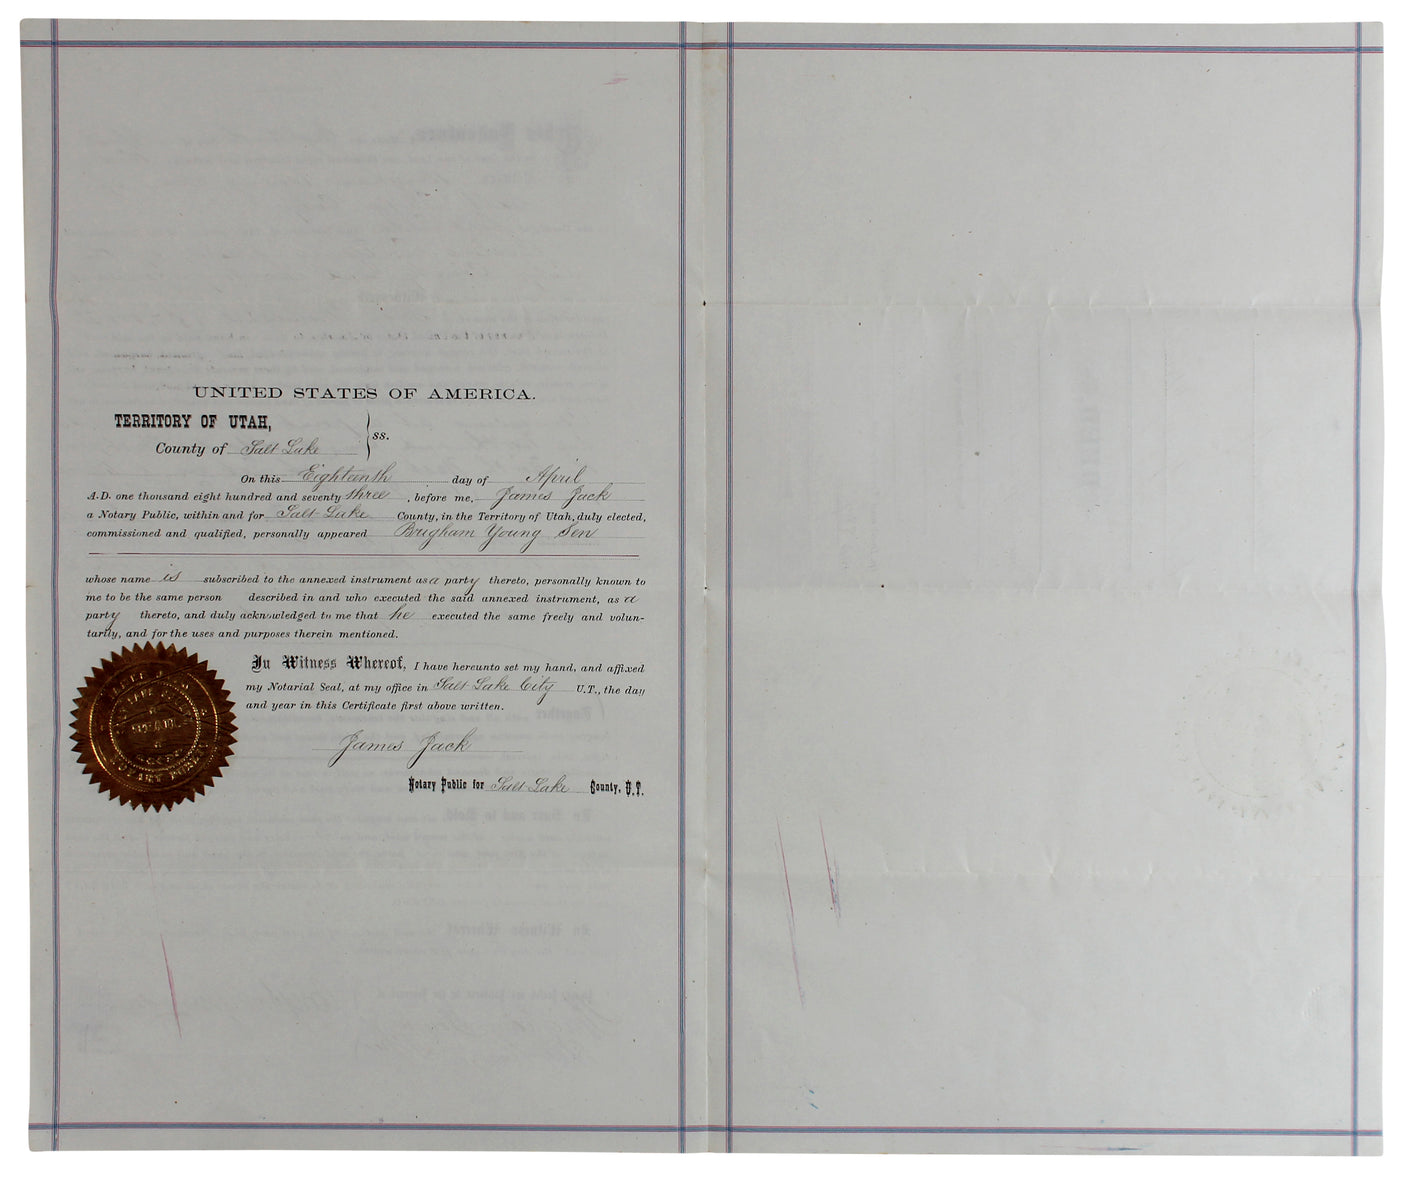 UNITED STATES OF AMERICA.
TERRITORY OF UTAH,
County of Salt Lake } ss.
On this Eighteenth day of April
A.D. one thousand eight hundred and seventy three, before me, James Jack
a Notary Public, within and for Salt Lake County, in the Territory of Utah, duly elected,
commissioned and qualified, personally appeared Brigham Young Sen
whose name is subscribed to the annexed instrument as a party thereto, personally known to
me to be the same person described in and who executed the said annexed instrument, as a
party thereto, and duly acknowledged to me that he executed the same freely and volun-
tarily, and for the uses and purposes therein mentioned.
In Witness Whereof, I have hereunto set my hand, and affixed
my Notarial Seal, at my office in Salt Lake City U.T., the day
and year in this Certificate first above written.
James Jack
Notary Public for Salt Lake County, U.T.
NOTARY PUBLIC